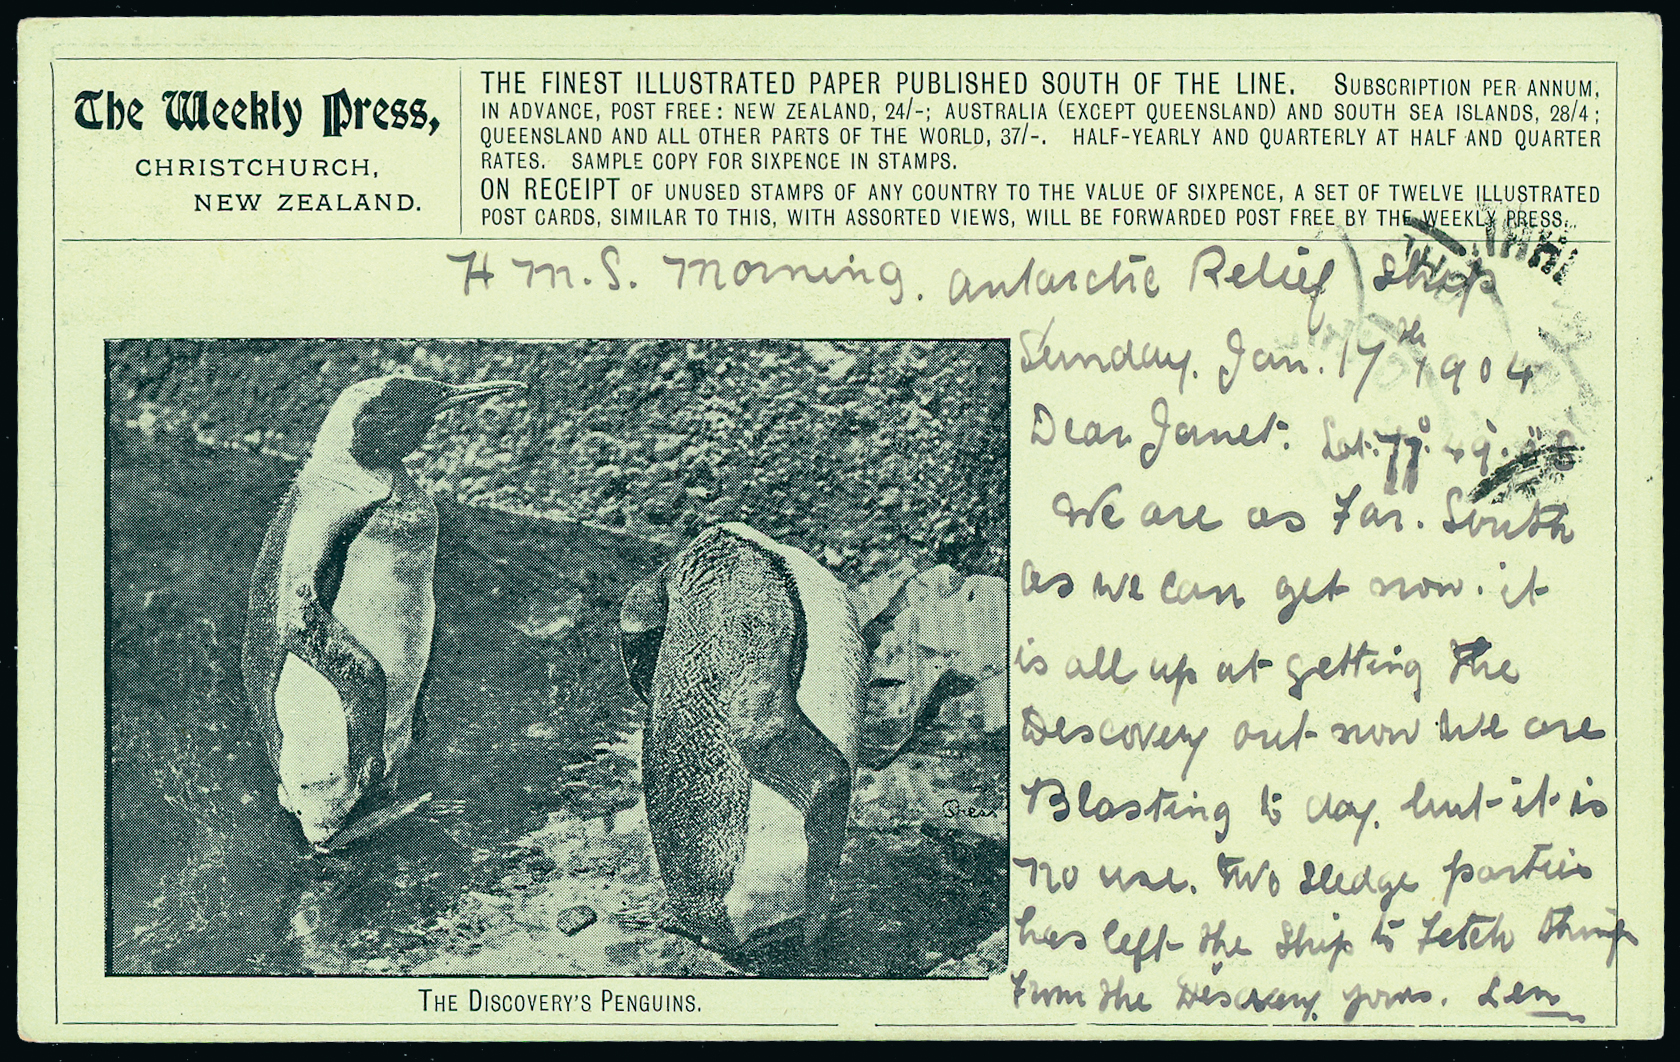 The Weekly Press,
CHRISTCHURCH,
NEW ZEALAND.
THE FINEST ILLUSTRATED PAPER PUBLISHED SOUTH OF THE LINE. SUBSCRIPTION PER ANNUM,
IN ADVANCE, POST FREE: NEW ZEALAND, 24/-; AUSTRALIA (EXCEPT QUEENSLAND) AND SOUTH SEA ISLANDS, 28/4;
QUEENSLAND AND ALL OTHER PARTS OF THE WORLD, 37/-. HALF-YEARLY AND QUARTERLY AT HALF AND QUARTER
RATES. SAMPLE COPY FOR SIXPENCE IN STAMPS.
ON RECEIPT OF UNUSED STAMPS OF ANY COUNTRY TO THE VALUE OF SIXPENCE, A SET OF TWELVE ILLUSTRATED
POST CARDS, SIMILAR TO THIS, WITH ASSORTED VIEWS, WILL BE FORWARDED POST FREE BY THE WEEKLY PRESS.
H M.S. Morning. Antarctic Relief Ship
Sunday. Jan. 17th 1904
Dear Janet. Lat. 77° 49.
We are as Far. South
as we can get now. it
is all up at getting the
Discovery out now We are
Blasting to day. but it is
no use. Two sledge parties
has left the Ship to Fetch things
From the Discovery. yours. Len
Press
THE DISCOVERY'S PENGUINS.